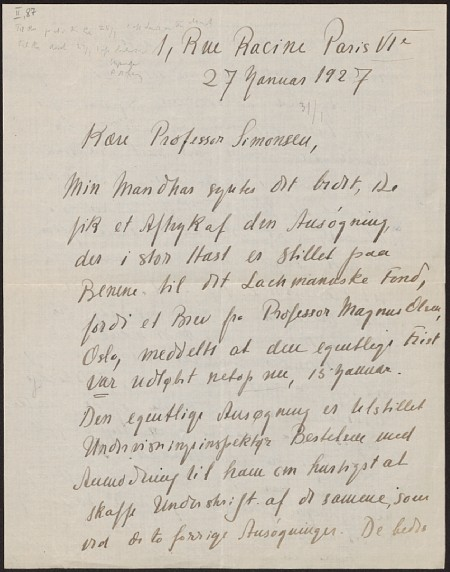 II, 87
1, Rue Racine Paris VIe
27 Januar 1927
31/1
Kære Professor Simonsen,
Min Mand har syntes det bedst, De
fik et Aftryk af den Ansøgning,
der i stor Hast er stillet paa
Benene til det Lachmannske Fond,
fordi et Brev fra Professor Magnus Olsen,
Oslo, meddelte at den egentlige Frist
var udløbet netop nu, 15 Januar.
Den egentlige Ansøgning er tilstillet
Undervisningsinspektør med
Anmodning til ham om hurtigst at
skaffe Underskrift af de samme, som
ved de to forrige Ansøgninger. De bedes